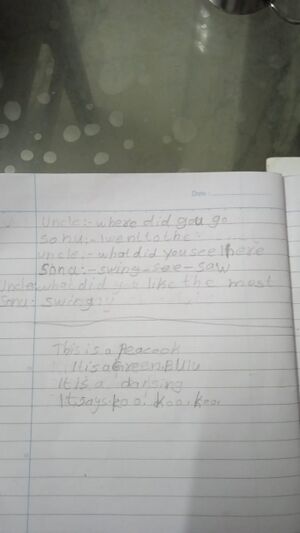 Date
Uncle:- where did gou go
sonu:- I went to the
uncle:- what did you see there
Sonu:- swing-see-saw
Uncle: what did you like the most
Sonu: swing
This is a peacock
It is a Green. Bulu
It is a dansing
It says. koo. koo. koo.